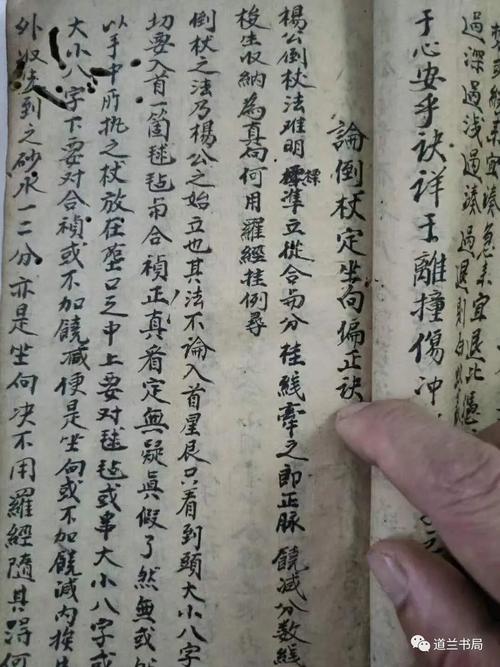 過深過浅過湊過退則
于心安乎訣詳于離撞傷冲
論倒杖定坐向偏正訣
楊公倒杖法难明標準立從合而分挂綫牽之即正脉饒減分数綫
梭生收納為真向何用羅經挂例尋
倒杖之法乃楊公之始立也其法不論入首星辰只看到頭大小八字
切要入首一箇毬毡而合禎正真看定無疑真假了然無或
以手中所执之杖放在堃口之中上要对毬毡或串大小八字或
大小八字下要对合禎或不加饒減便是坐向或不加饒減内挨生
外收到之砂水一二分亦是坐向决不用羅經隨其得何
道兰书局